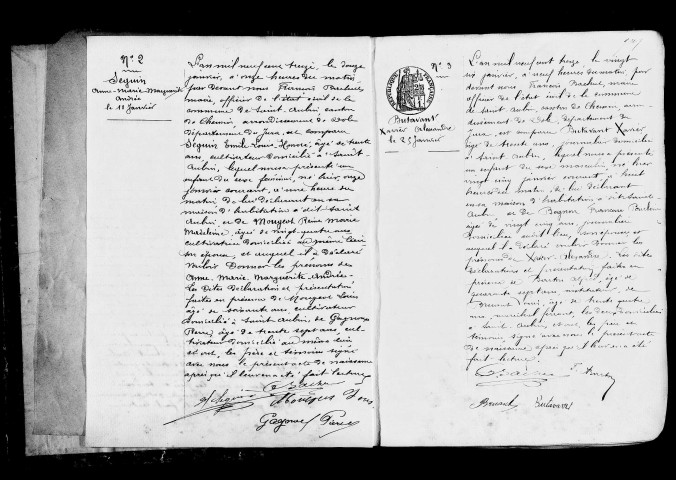 N° 2
Seguin
Anne-Marie-Marguerite
Andrée
le 11 Janvier
L'an mil neuf cent treize, le douze
janvier, à onze heures du matin
par devant nous François Bachut
maire, officier de l'état civil de la
commune de Saint-Aubin canton
de Chemin, arrondissement de Dole
Département du Jura, est comparu
Seguin Emile Louis Honoré, âgé de trente
ans, cultivateur domicilié à Saint-
Aubin, lequel nous a présenté un
enfant du sexe féminin, né hier, onze
janvier courant, à une heure du
matin de lui déclarant en sa
maison d'habitation à dit Saint
Aubin et de Mougeot Reine Marie
Madeleine, âgée de vingt-quatre ans
cultivatrice domiciliée au même lieu
son épouse, et auquel il a déclaré
vouloir donner les prénoms de
Anne-Marie-Marguerite-Andrée
Les dites déclaration et présentation
faites en présence de Mougeot Louis
âgé de soixante ans, cultivateur
domicilié à Saint-Aubin, de Gagnoux
Pierre, âgé de trente sept ans, cul-
tivateur domicilié au même lieu
et ont, les père et témoins signé
avec nous le présent acte de naissance
après qu'il leur en a été fait lecture
Seguin
Mougeot Louis
Pierre
N° 3
RÉPUBLIQUE FRANÇAISE
Butavant
Xavier Alexandre
le 25 Janvier
L'an mil neuf cent treize, le vingt
six janvier, à neuf heures du matin, par
devant nous François Bachut, maire
officier de l'état civil de la commune
de Saint-Aubin, canton de Chemin, arron-
dissement de Dole, département du
Jura, est comparu Butavant Xavier
âgé de trente ans, journalier domicilié
à Saint Aubin, lequel nous a présenté
un enfant du sexe masculin né hier
vingt cinq janvier courant, à huit
heures du matin, de lui déclarant
en sa maison d'habitation à dit Saint-
Aubin et de
âgée de vingt cinq ans, journalière
domiciliée au dit lieu, son épouse et
auquel il a déclaré vouloir donner les
prénoms de Xavier-Alexandre. Les dites
déclaration et présentation faites en
présence de
ans, instituteur, de
âgé de trente quatre
ans, maréchal ferrant, les deux domiciliés
à Saint-Aubin, et ont, les père et
témoins signé avec nous le présent acte
de naissance après qu'il leur en a été
fait lecture
Butavant